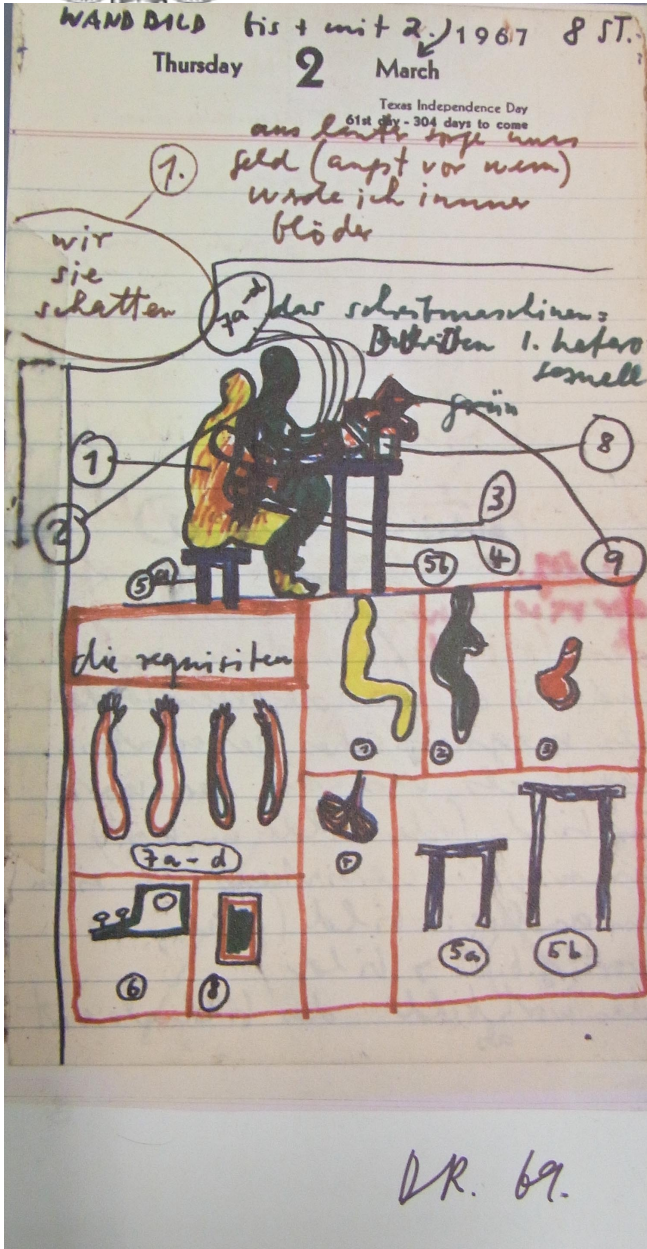 WANDBILD bis + mit 2. 1967 8 ST.
Thursday 2 March
Texas Independence Day
61st day - 304 days to come
aus lauter sorge ums
geld (angst vor wem)
werde ich immer
blöder
1.
wir
sie
schatten
7a-d
das schreibmaschinen=
1. hetero
sexuell
grün
1
8
2
3
4
9
5a
5b
die requisiten
1
2
3
7a-d
5a
5b
6
8
D.R. 69.